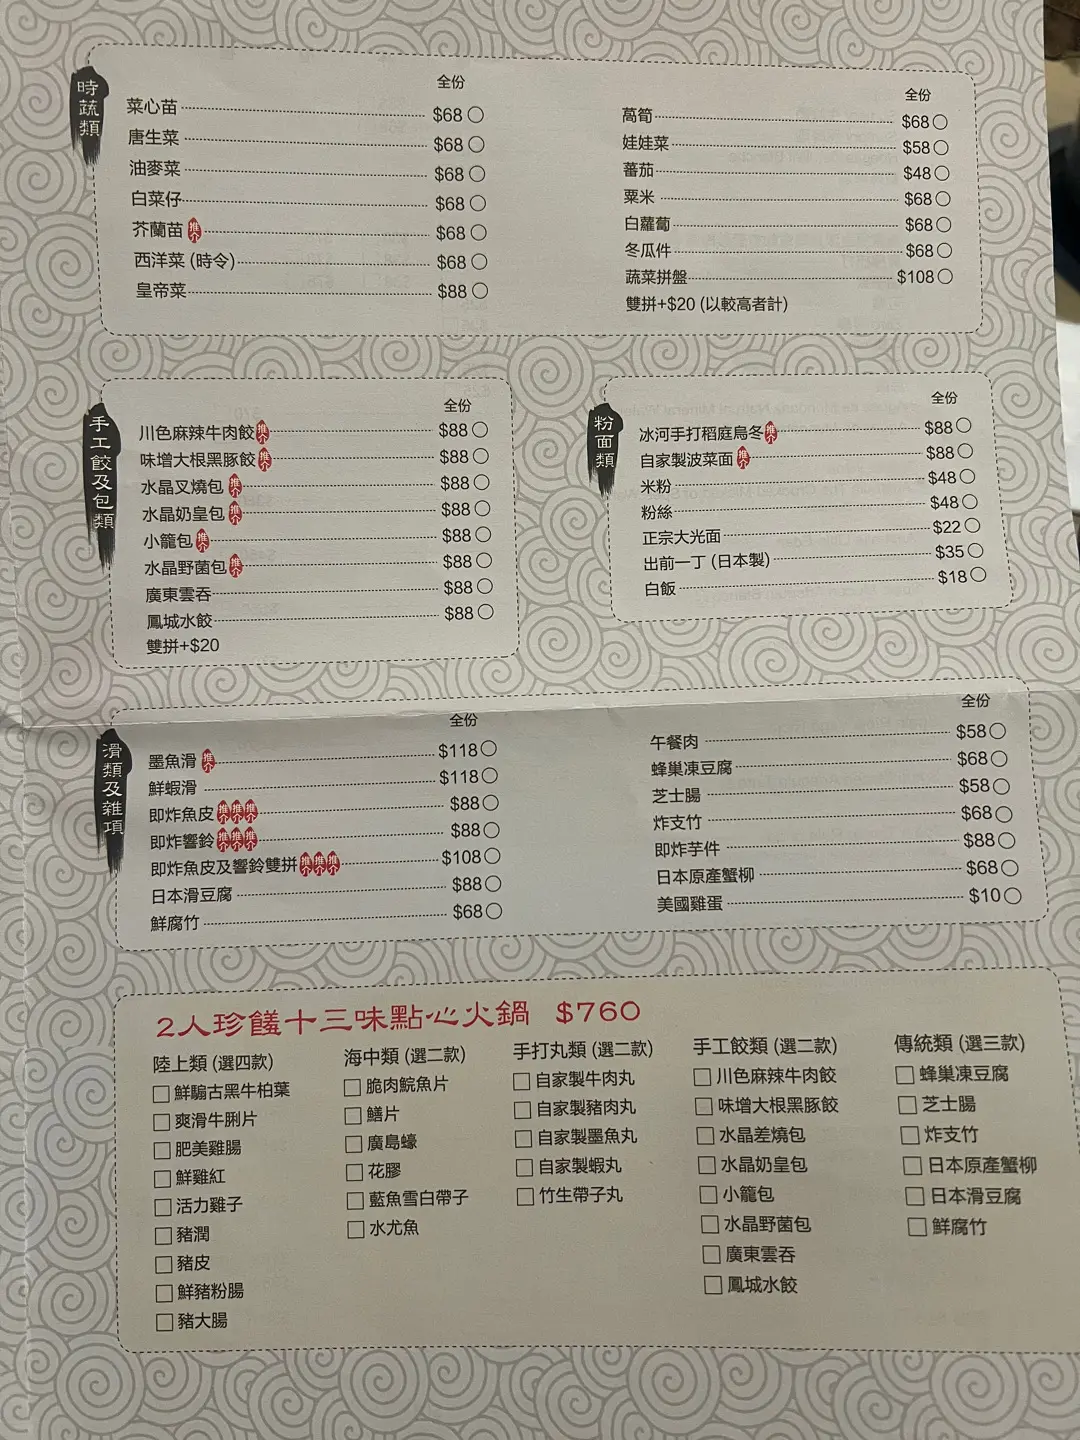 時蔬類
全份
菜心苗 $68
唐生菜 $68
油麥菜 $68
白菜仔 $68
芥蘭苗 推介 $68
西洋菜 (時令) $68
皇帝菜 $88
全份
萵筍 $68
娃娃菜 $58
蕃茄 $48
粟米 $68
白蘿蔔 $68
冬瓜件 $68
蔬菜拼盤 $108
雙拼+$20 (以較高者計)
手工餃及包類
全份
川色麻辣牛肉餃 推介 $88
味增大根黑豚餃 推介 $88
水晶叉燒包 推介 $88
水晶奶皇包 推介 $88
小籠包 推介 $88
水晶野菌包 推介 $88
廣東雲吞 $88
鳳城水餃 $88
雙拼+$20
粉面類
全份
冰河手打稻庭烏冬 推介 $88
自家製波菜面 推介 $88
米粉 $48
粉絲 $48
正宗大光面 $22
出前一丁 (日本製) $35
白飯 $18
滑類及雜項
全份
墨魚滑 推介 $118
鮮蝦滑 $118
即炸魚皮 推介 推介 推介 $88
即炸響鈴 推介 推介 推介 $88
即炸魚皮及響鈴雙拼 推介 推介 推介 $108
日本滑豆腐 $88
鮮腐竹 $68
全份
午餐肉 $58
蜂巢凍豆腐 $68
芝士腸 $58
炸支竹 $68
即炸芋件 $88
日本原產蟹柳 $68
美國雞蛋 $10
2人珍饈十三味點心火鍋 $760
陸上類 (選四款)
鮮騸古黑牛柏葉
爽滑牛脷片
肥美雞腸
鮮雞紅
活力雞子
豬潤
豬皮
鮮豬粉腸
豬大腸
海中類 (選二款)
脆肉鯇魚片
鱔片
廣島蠔
花膠
藍魚雪白帶子
水尤魚
手打丸類 (選二款)
自家製牛肉丸
自家製豬肉丸
自家製墨魚丸
自家製蝦丸
竹生帶子丸
手工餃類 (選二款)
川色麻辣牛肉餃
味增大根黑豚餃
水晶差燒包
水晶奶皇包
小籠包
水晶野菌包
廣東雲吞
鳳城水餃
傳統類 (選三款)
蜂巢凍豆腐
芝士腸
炸支竹
日本原產蟹柳
日本滑豆腐
鮮腐竹